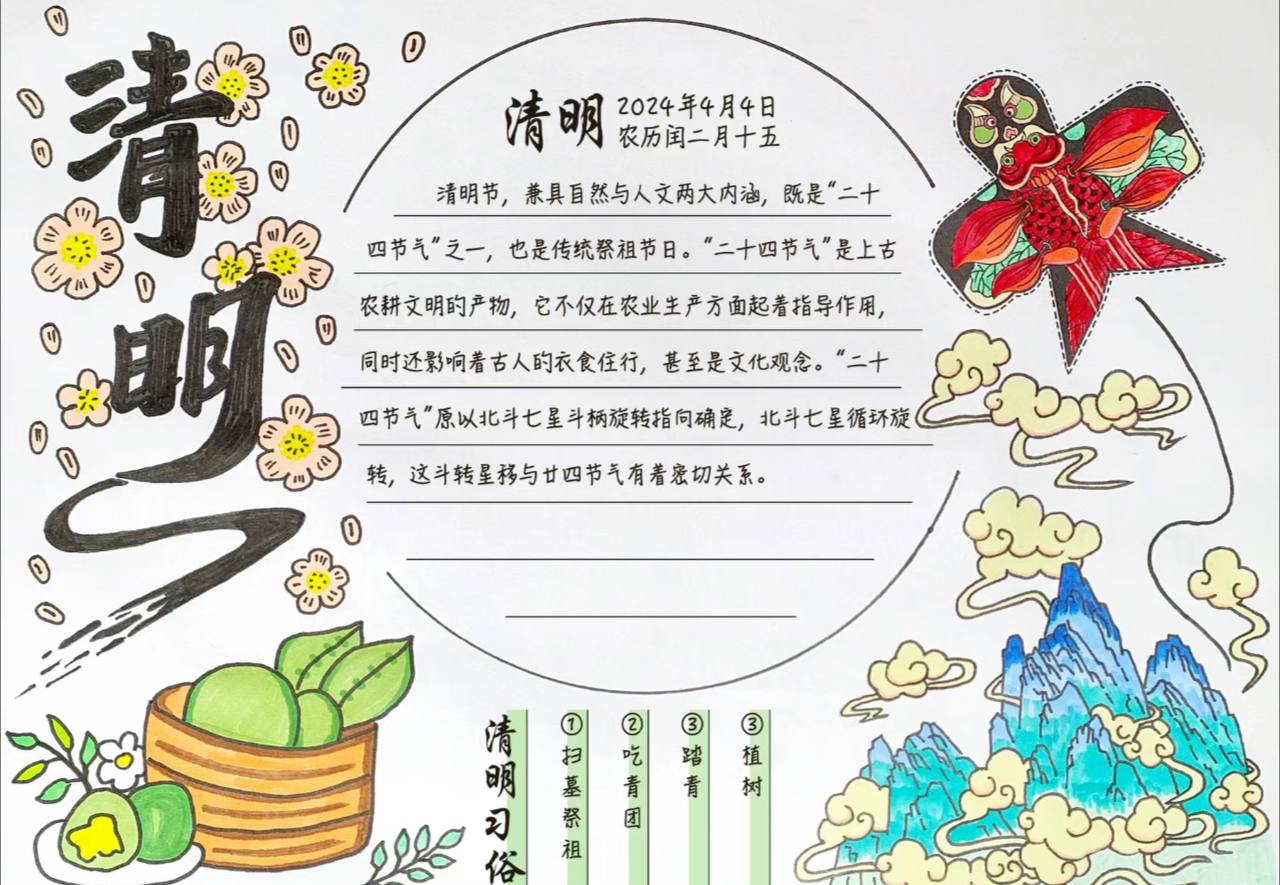 清明
清明
2024年4月4日
农历闰二月十五
清明节，兼具自然与人文两大内涵，既是“二十
四节气”之一，也是传统祭祖节日。“二十四节气”是上古
农耕文明的产物，它不仅在农业生产方面起着指导作用，
同时还影响着古人的衣食住行，甚至是文化观念。“二十
四节气”原以北斗七星斗柄旋转指向确定，北斗七星循环旋
转，这斗转星移与廿四节气有着密切关系。
清明习俗
①扫墓祭祖
②吃青团
③踏青
③植树